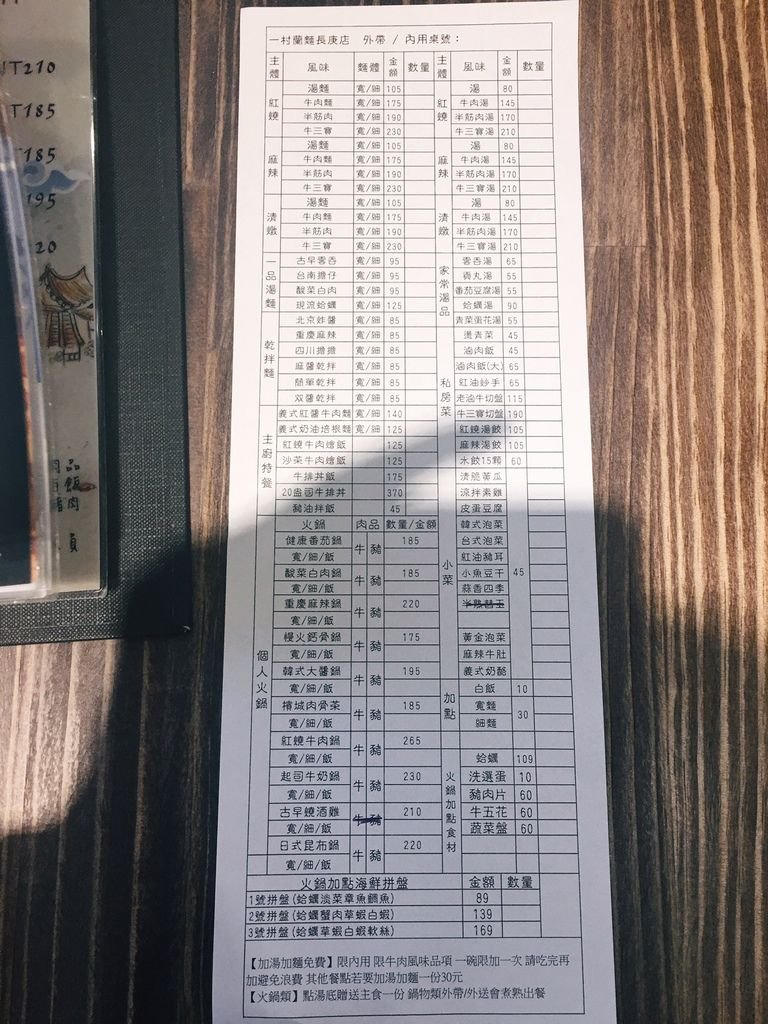 T210
T185
T185
195
20
一村蘭麵長庚店 外帶 / 內用桌號：
主體 風味 麵體 金額 數量 主體 風味 金額 數量
紅燒 湯麵 寬/細 105 紅燒 湯 80
牛肉麵 寬/細 175 牛肉湯 145
半筋肉 寬/細 190 半筋肉湯 170
牛三寶 寬/細 230 牛三寶湯 210
麻辣 湯麵 寬/細 105 麻辣 湯 80
牛肉麵 寬/細 175 牛肉湯 145
半筋肉 寬/細 190 半筋肉湯 170
牛三寶 寬/細 230 牛三寶湯 210
清燉 湯麵 寬/細 105 清燉 湯 80
牛肉麵 寬/細 175 牛肉湯 145
半筋肉 寬/細 190 半筋肉湯 170
牛三寶 寬/細 230 牛三寶湯 210
一品湯麵 古早雲吞 寬/細 95 家常湯品 雲吞湯 65
台南擔仔 寬/細 95 貢丸湯 55
酸菜白肉 寬/細 95 番茄豆腐湯 55
現流蛤蠣 寬/細 125 蛤蠣湯 90
乾拌麵 北京炸醬 寬/細 85 青菜蛋花湯 55
重慶麻辣 寬/細 85 私房菜 燙青菜 45
四川擔擔 寬/細 85 滷肉飯 45
麻醬乾拌 寬/細 85 滷肉飯(大) 65
簡單乾拌 寬/細 85 紅油炒手 65
双醬乾拌 寬/細 85 老滷牛切盤 115
主廚特餐 義式紅醬牛肉麵 寬/細 140 牛三寶切盤 190
義式奶油培根麵 寬/細 125 紅燒湯餃 105
紅燒牛肉燴飯 125 麻辣湯餃 105
沙茶牛肉燴飯 125 水餃15顆 60
牛排丼飯 175 小菜 清脆黃瓜 45
20盎司牛排丼 370 涼拌素雞
豬油拌飯 45 皮蛋豆腐
火鍋 肉品 數量/金額 韓式泡菜
個人火鍋 健康番茄鍋 牛 豬 185 台式泡菜
寬/細/飯 紅油豬耳
酸菜白肉鍋 牛 豬 185 小魚豆干
寬/細/飯 蒜香四季
重慶麻辣鍋 牛 豬 220 半熟醬玉
寬/細/飯
慢火鈣骨鍋 牛 豬 175 黃金泡菜
寬/細/飯 麻辣牛肚
韓式大醬鍋 牛 豬 195 義式奶酪
寬/細/飯 加點 白飯 10
檳城肉骨茶 牛 豬 185 寬麵 30
寬/細/飯 細麵
紅燒牛肉鍋 牛 豬 265
寬/細/飯 火鍋加點食材 蛤蠣 109
起司牛奶鍋 牛 豬 230 洗選蛋 10
寬/細/飯 豬肉片 60
古早燒酒雞 牛 豬 210 牛五花 60
寬/細/飯 蔬菜盤 60
日式昆布鍋 牛 豬 220
寬/細/飯
火鍋加點海鮮拼盤 金額 數量
1號拼盤(蛤蠣淡菜章魚鯛魚) 89
2號拼盤(蛤蠣蟹肉草蝦白蝦) 139
3號拼盤(蛤蠣草蝦白蝦軟絲) 169
【加湯加麵免費】限內用 限牛肉風味品項 一碗限加一次 請吃完再
加避免浪費 其他餐點若要加湯加麵一份30元
【火鍋類】點湯底贈送主食一份 鍋物類外帶/外送會煮熟出餐